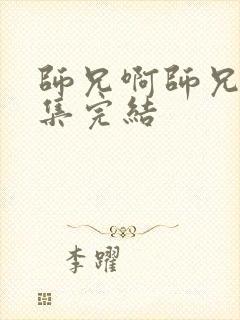 師兄啊師兄
集完結
李躍